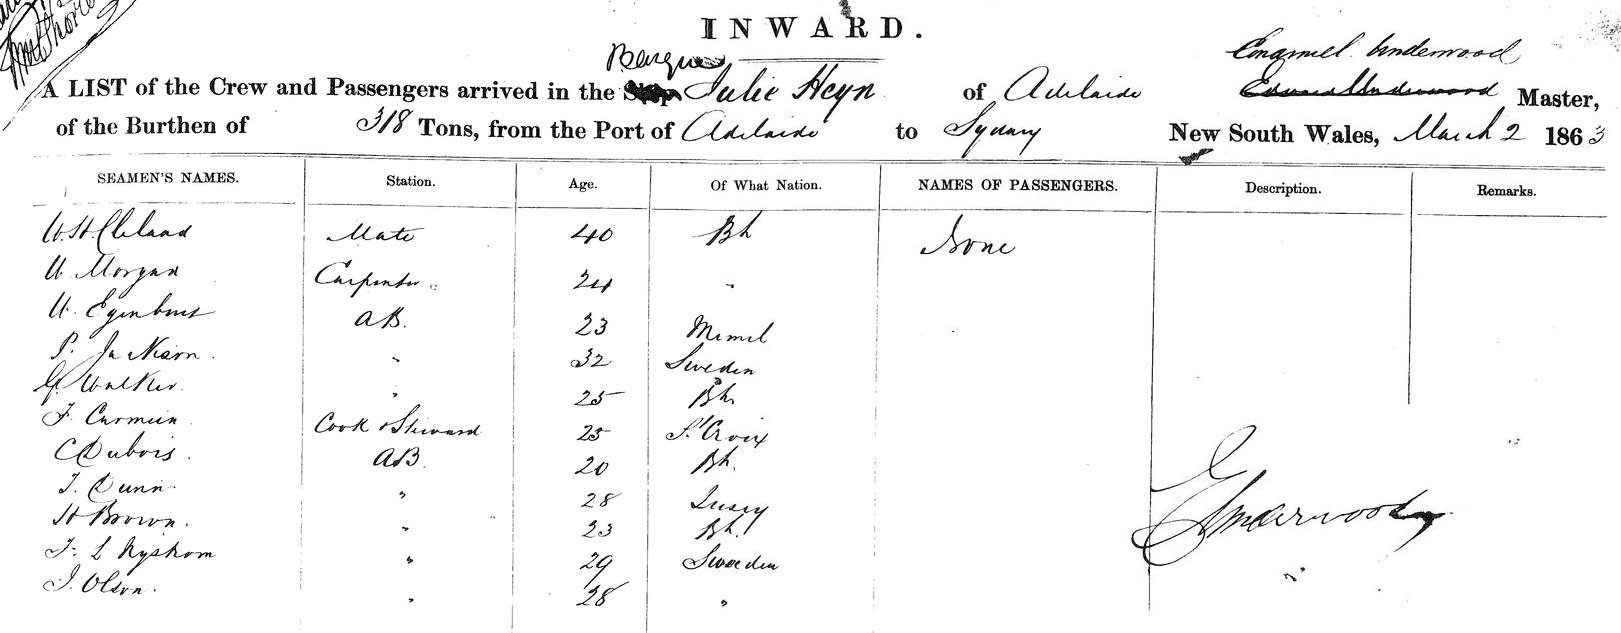 INWARD.
Barque
Underwood
A LIST of the Crew and Passengers arrived in the Ship Julie Heyn of Adelaide Master,
of the Burthen of 318 Tons, from the Port of Adelaide to Sydney New South Wales, March 2 1863
SEAMEN'S NAMES. Station. Age. Of What Nation. NAMES OF PASSENGERS. Description. Remarks.
W. H. Cleland Mate 40 Bh None
W. Morgan Carpenter 24 "
23 Memel
A.B.
P. 32 Sweden
G. Walker " 25 Bh
F. Cook & Steward 25 St Croix
C Dubois. AB. 20 Bh.
J. Dunn " 28
H Brown. " 23 Bh.
F. L Nystrom " 29 Sweden
J. Olson. " 28 "